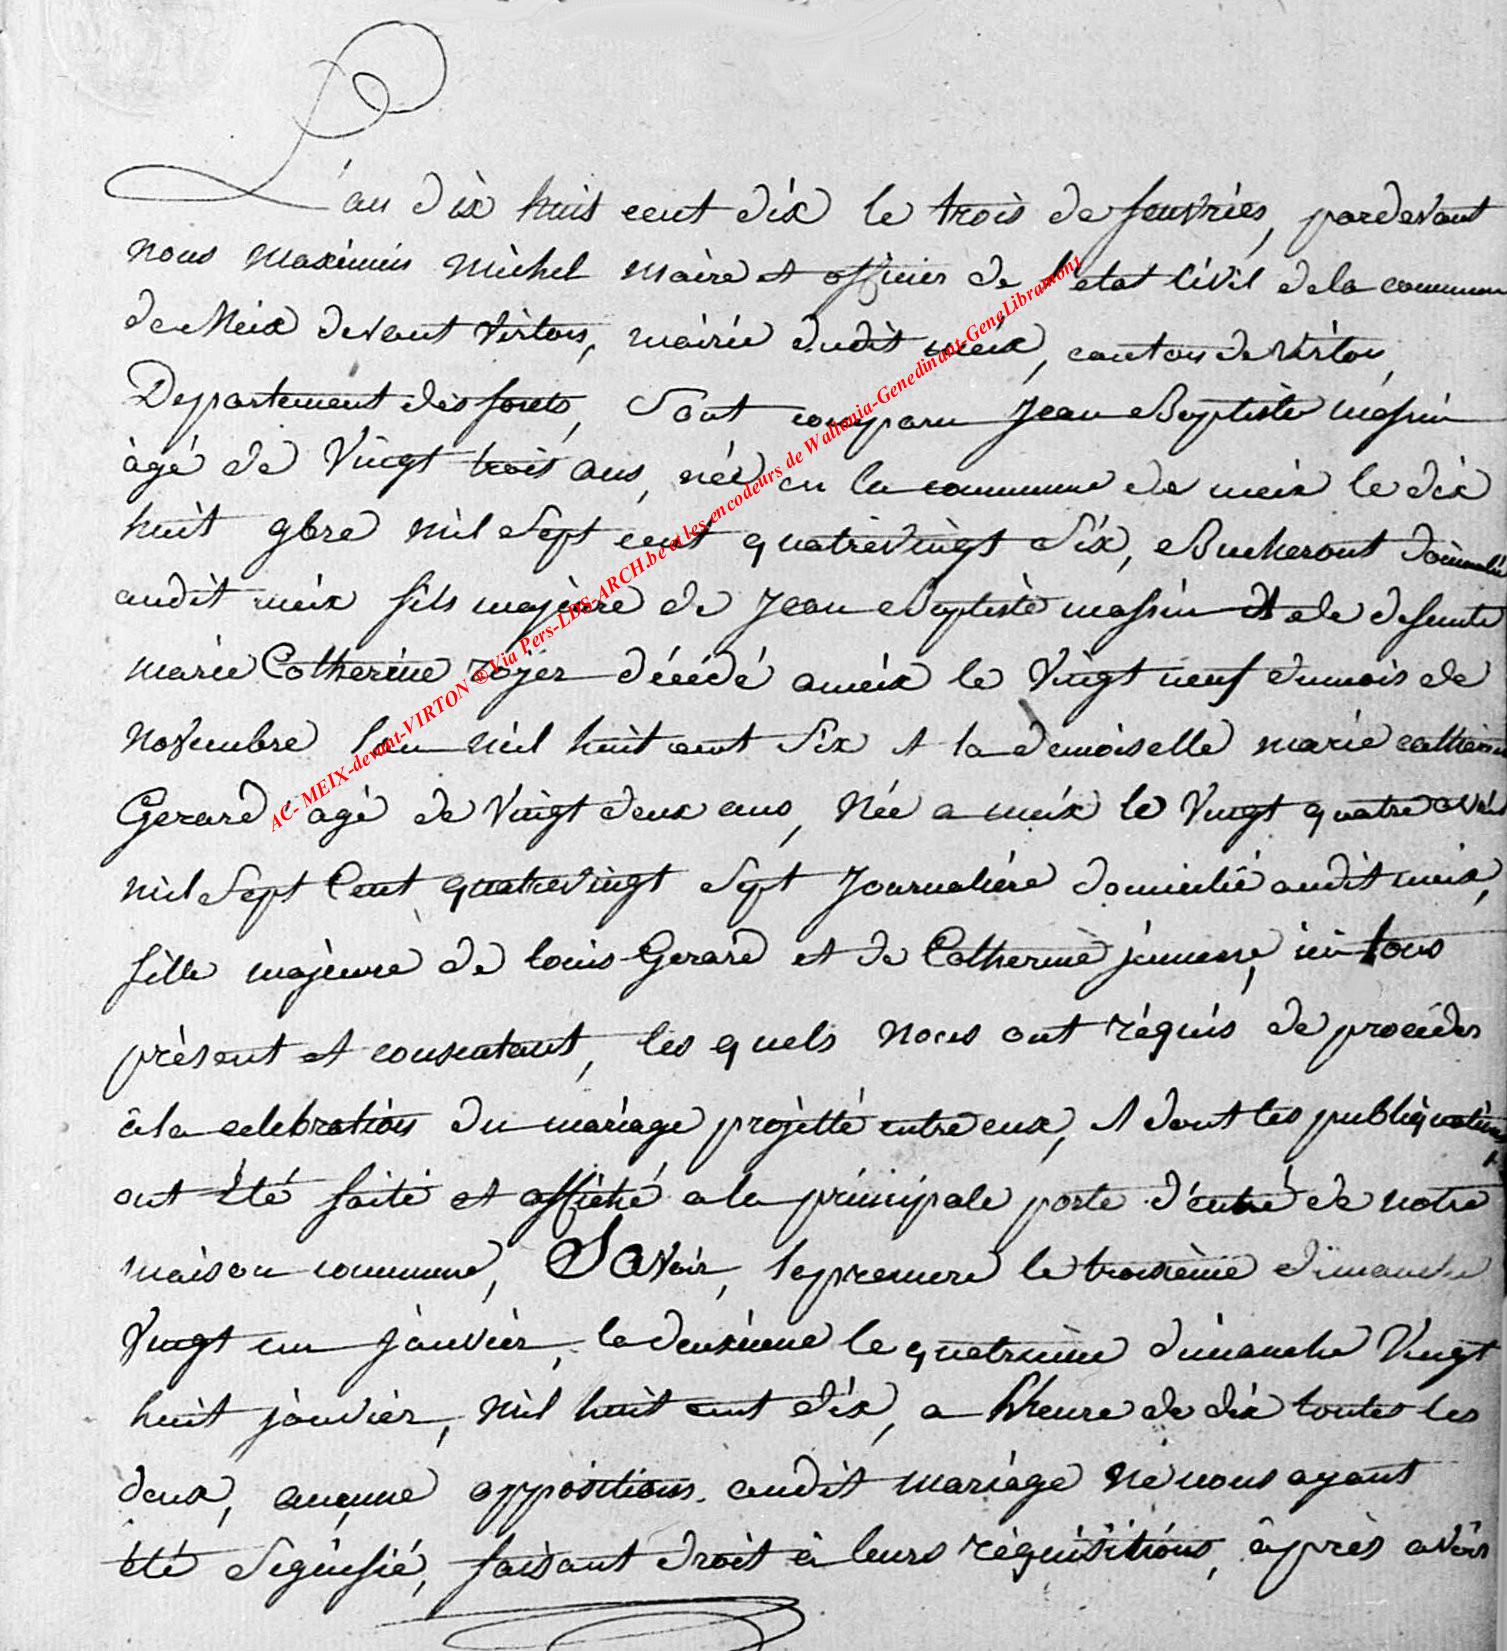 L'an dix huit cent dix le trois de feuvrier, pardevant
nous maximin michel maire et officier de l'etat civil de la commune
de Meix devant virton, mairie dudit meix, canton de virton,
Departement des forets, Sont comparu Jean Baptiste massin
àgé de vingt trois ans, néé en la commune de meix le dix
huit 9bre mil sept cent quatrevingt six, Bucheront domicilié
audit meix fils majeure de Jean Baptiste massin et de defunte
marie Catherine décédé a meix le vingt neuf du mois de
novembre l'an mil huit cent six et la demoiselle marie catherine
Gerard agé de vingt deux ans, née a meix le vingt quatre avril
mil sept Cent quatrevingt sept Journaliére domicilié audit meix,
fille majeure de louis Gerard et de Catherine tous
présent et consentant, les quels nous ont réquis de proceder
à la celebration du mariage projetté entre eux, et dont les publiquations
ont été faite et affiché a la principale porte d'entré de notre
maison commune, Savoir, la premiere le troisième dimanche
vingt un janvier, la deuxieme le quatrieme dimanche vingt
huit janvier, mil huit cent dix, a l'heure de dix toutes les
deux, aucune oppositions audit mariage ne nous ayant
été signifié, faisant droit à leurs réquisitions, âprès avoir
AC- MEIX-devant-VIRTON ® Via Pers-LDS-ARCH.be et les encodeurs de Wallonia-Genedinant-GeneLibramont